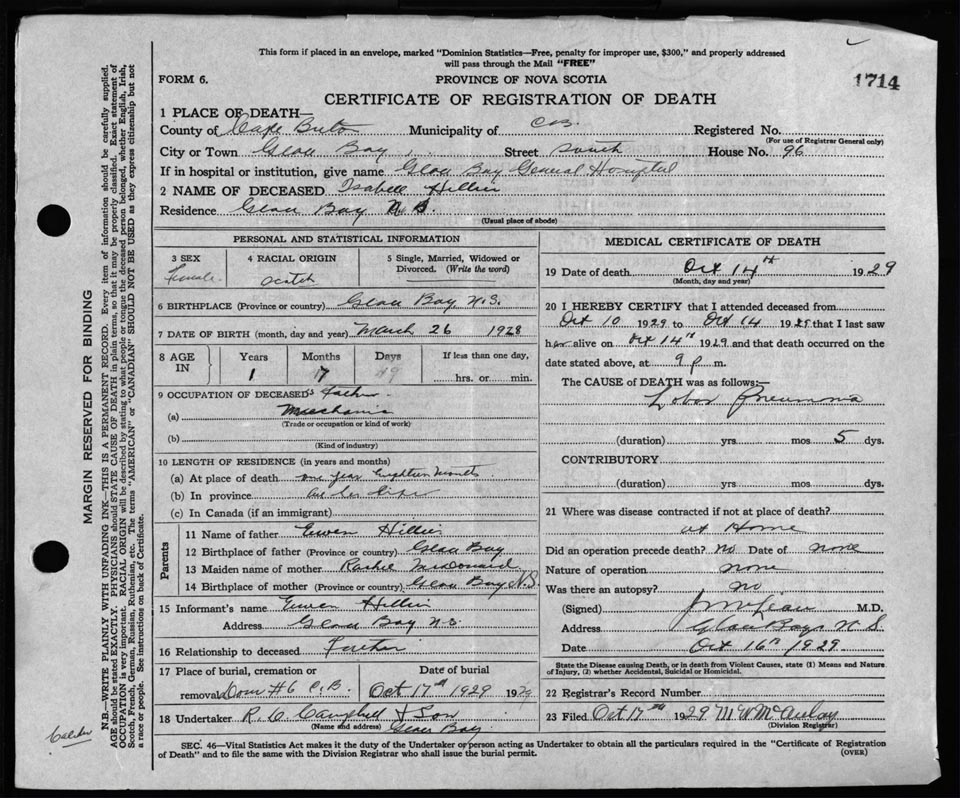 This form if placed in an envelope, marked "Dominion Statistics—Free, penalty for improper use, $300," and properly addressed
will pass through the Mail "FREE"
FORM 6. PROVINCE OF NOVA SCOTIA 1714
CERTIFICATE OF REGISTRATION OF DEATH
1 PLACE OF DEATH—
County of Cape Breton Municipality of C.B. Registered No.
(For use of Registrar General only)
City or Town Glace Bay Street South House No. 96
If in hospital or institution, give name Glace Bay General Hospital
2 NAME OF DECEASED Isabell Hillier
Residence Glace Bay N.S.
(Usual place of abode)
PERSONAL AND STATISTICAL INFORMATION
3 SEX 4 RACIAL ORIGIN 5 Single, Married, Widowed or
Divorced. (Write the word)
Female Scotch
6 BIRTHPLACE (Province or country) Glace Bay N.S.
7 DATE OF BIRTH (month, day and year) March 26 1928
8 AGE IN Years Months Days If less than one day,
1 7 19 hrs. or min.
9 OCCUPATION OF DECEASED's Father
(a) Mechanic
(Trade or occupation or kind of work)
(b)
(Kind of industry)
10 LENGTH OF RESIDENCE (in years and months)
(a) At place of death one year Eighteen Months
(b) In province all her life
(c) In Canada (if an immigrant)
Parents
11 Name of father Ewen Hillier
12 Birthplace of father (Province or country) Glace Bay
13 Maiden name of mother McDonald
14 Birthplace of mother (Province or country) Glace Bay N.S.
15 Informant's name Ewen Hillier
Address Glace Bay N.S.
16 Relationship to deceased Father
17 Place of burial, cremation or Date of burial
removal Dom #6 C.B. Oct 17th 1929 1929
18 Undertaker R. C. Campbell & Son
(Name and address) Glace Bay
MEDICAL CERTIFICATE OF DEATH
19 Date of death Oct 14th 1929
(Month, day and year)
20 I HEREBY CERTIFY that I attended deceased from
Oct 10 1929 to Oct 14 1929 that I last saw
her alive on Oct 14th 1929 and that death occurred on the
date stated above, at 9 p m.
The CAUSE of DEATH was as follows:—
Lobar Pneumonia
(duration) yrs. mos 5 dys.
CONTRIBUTORY
(duration) yrs. mos dys.
21 Where was disease contracted if not at place of death?
at Home
Did an operation precede death? no Date of none
Nature of operation none
Was there an autopsy? no
(Signed) J McLean M.D.
Address Glace Bay N S
Date Oct 16th 1929
State the Disease causing Death, or in death from Violent Causes, state (1) Means and Nature
of Injury, (2) whether Accidental, Suicidal or Homicidal.
22 Registrar's Record Number
23 Filed Oct 17th 1929 M W McAulay
(Division Registrar)
SEC. 46—Vital Statistics Act makes it the duty of the Undertaker or person acting as Undertaker to obtain all the particulars required in the "Certificate of Registration
of Death" and to file the same with the Division Registrar who shall issue the burial permit. (OVER)
MARGIN RESERVED FOR BINDING
N.B.—WRITE PLAINLY WITH UNFADING INK—THIS IS A PERMANENT RECORD. Every item of information should be carefully supplied.
AGE should be stated EXACTLY. PHYSICIANS should STATE CAUSE OF DEATH in plain terms, so that it may be properly classified. Exact statement of
OCCUPATION is very important. RACIAL ORIGIN will be described by stating to what people or tongue the deceased person belonged, whether English, Irish,
Scotch, French, German, Russian, Ruthenian, etc. The terms "AMERICAN" or "CANADIAN" SHOULD NOT BE USED as they express citizenship but not
a race or people. See instructions on back of Certificate.